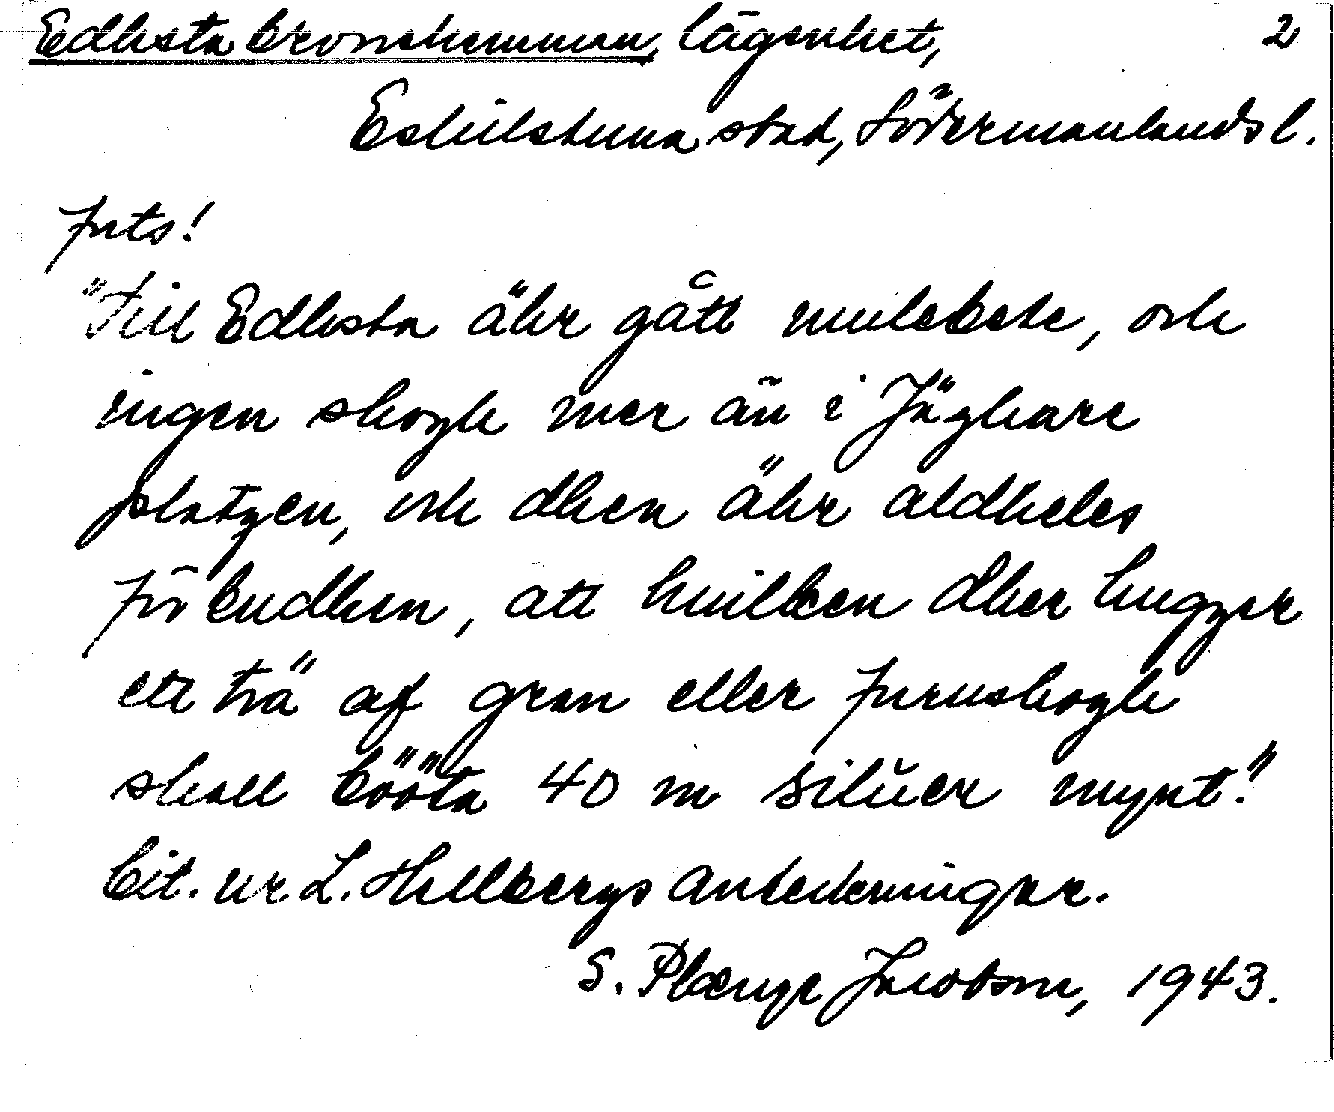 Edhsta kronohemman, lägenhet, 2
Eskilstuna stad, Södermanlands l.
forts!
"Till Edhsta ähr gått mulebete, och
ingen skogh mer än i Jäghare
platzen, och dhen ähr aldheles
förbudhen, att huilken dher hugger
ett trä af gran eller furuskogh
skall bööta 40 m silŭer mynt."
Cit. ur L. Hellbergs anteckningar.
S. Plænge Jacobson, 1943.